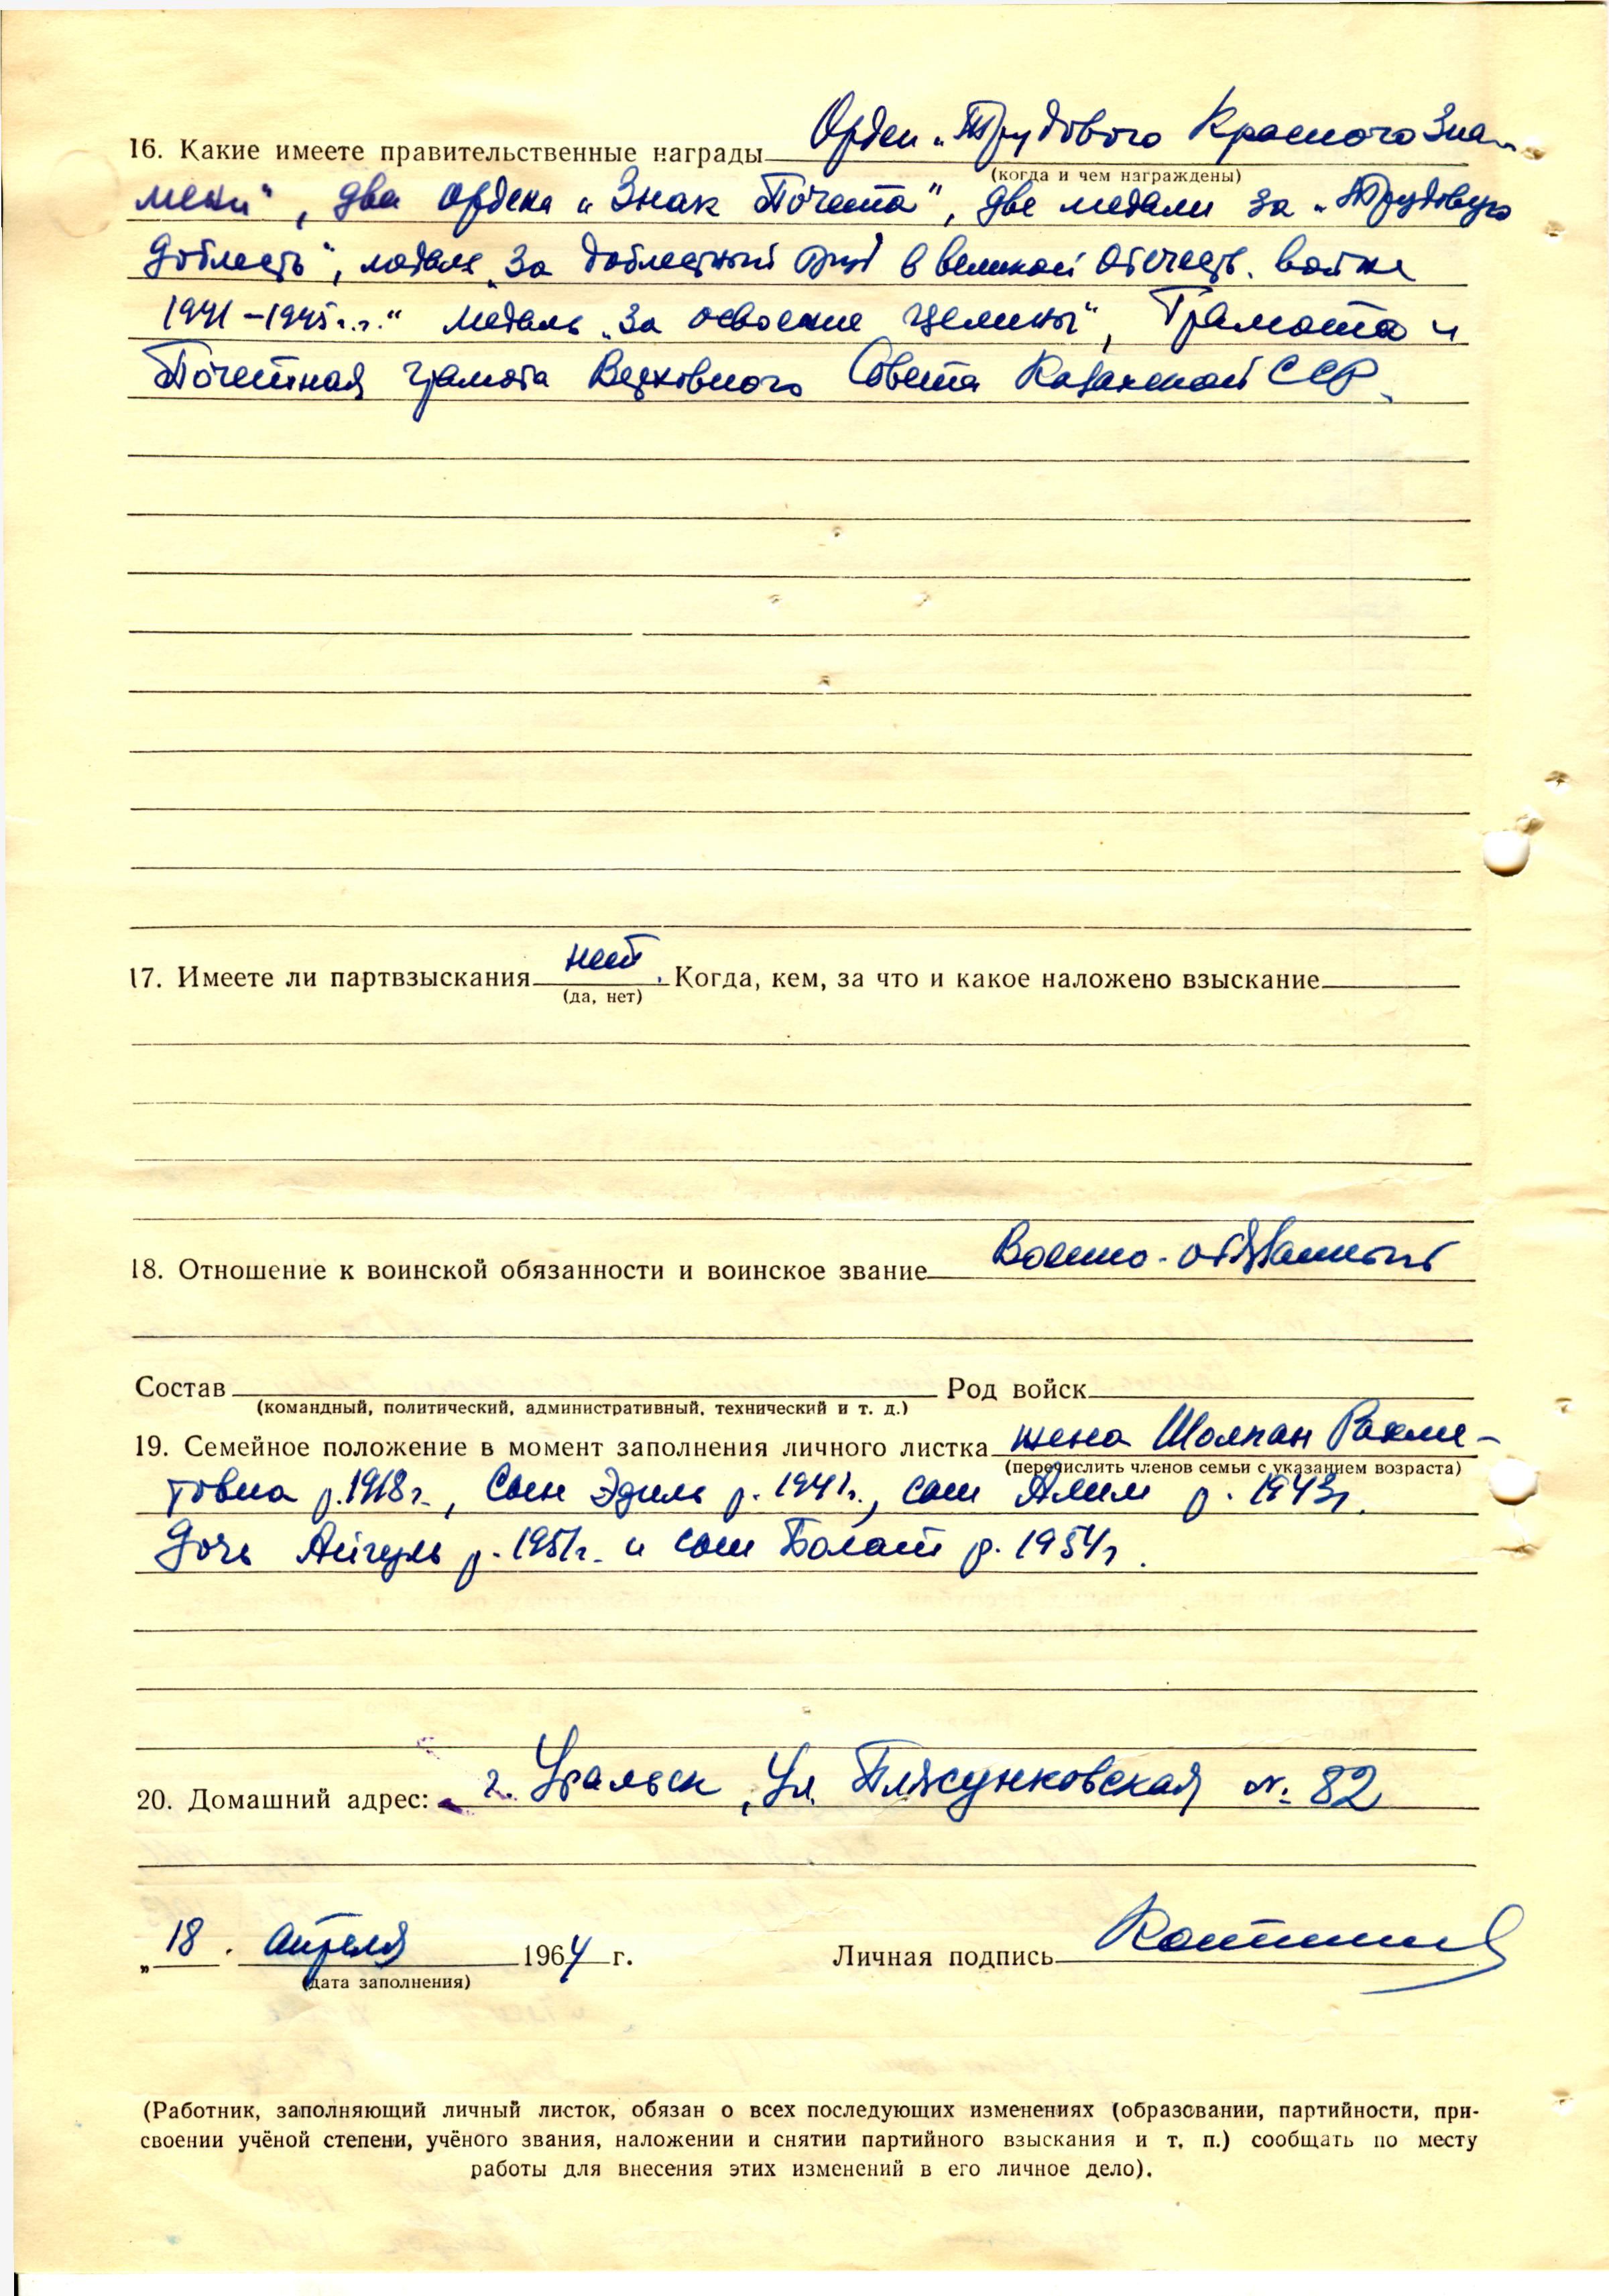 16. Какие имеете правительственные награды Орден „Трудового Красного Зна-
(когда и чем награждены)
мени“, два ордена „Знак Почета“, две медали за „Трудовую
доблесть“, медаль „За доблестный труд в великой отечеств. войне
1941–1945 г.г.“ медаль „За освоение целины“, Грамота и
Почетная грамота Верховного Совета Казахской ССР.
17. Имеете ли партвзыскания нет. Когда, кем, за что и какое наложено взыскание
(да, нет)
18. Отношение к воинской обязанности и воинское звание Военно-обязанный
Состав Род войск
(командный, политический, административный, технический и т. д.)
19. Семейное положение в момент заполнения личного листка жена Шолпан Рахме-
(перечислить членов семьи с указанием возраста)
товна р. 1918 г., сын Эдиль р. 1941 г., сын Алим р. 1943 г.
дочь Айгуль р. 1951 г. и сын Болат р. 1954 г.
20. Домашний адрес: г. Уральск, ул. №: 82
„18. апреля 1964 г. Личная подпись
(дата заполнения)
(Работник, заполняющий личный листок, обязан о всех последующих изменениях (образовании, партийности, при-
своении учёной степени, учёного звания, наложении и снятии партийного взыскания и т. п.) сообщать по месту
работы для внесения этих изменений в его личное дело).